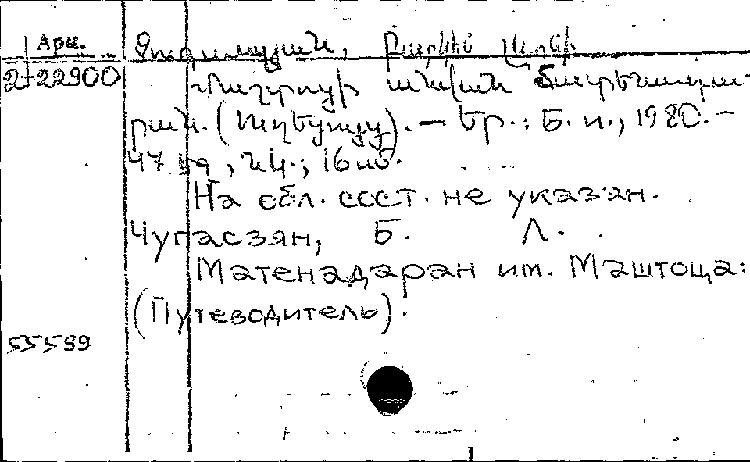 Арм.
2-22900
Չուգասզյան, Բաբկեն Լևոնի
Մաշտոցի անվան մատենադա-
րան. (Ուղեցույց). — Եր.: Б. и., 1980. —
47 էջ, նկ.; 16 սմ.
На обл. сост. не указан.
Чугасзян, Б. Л.
Матенадаран им. Маштоца:
(Путеводитель).
55599